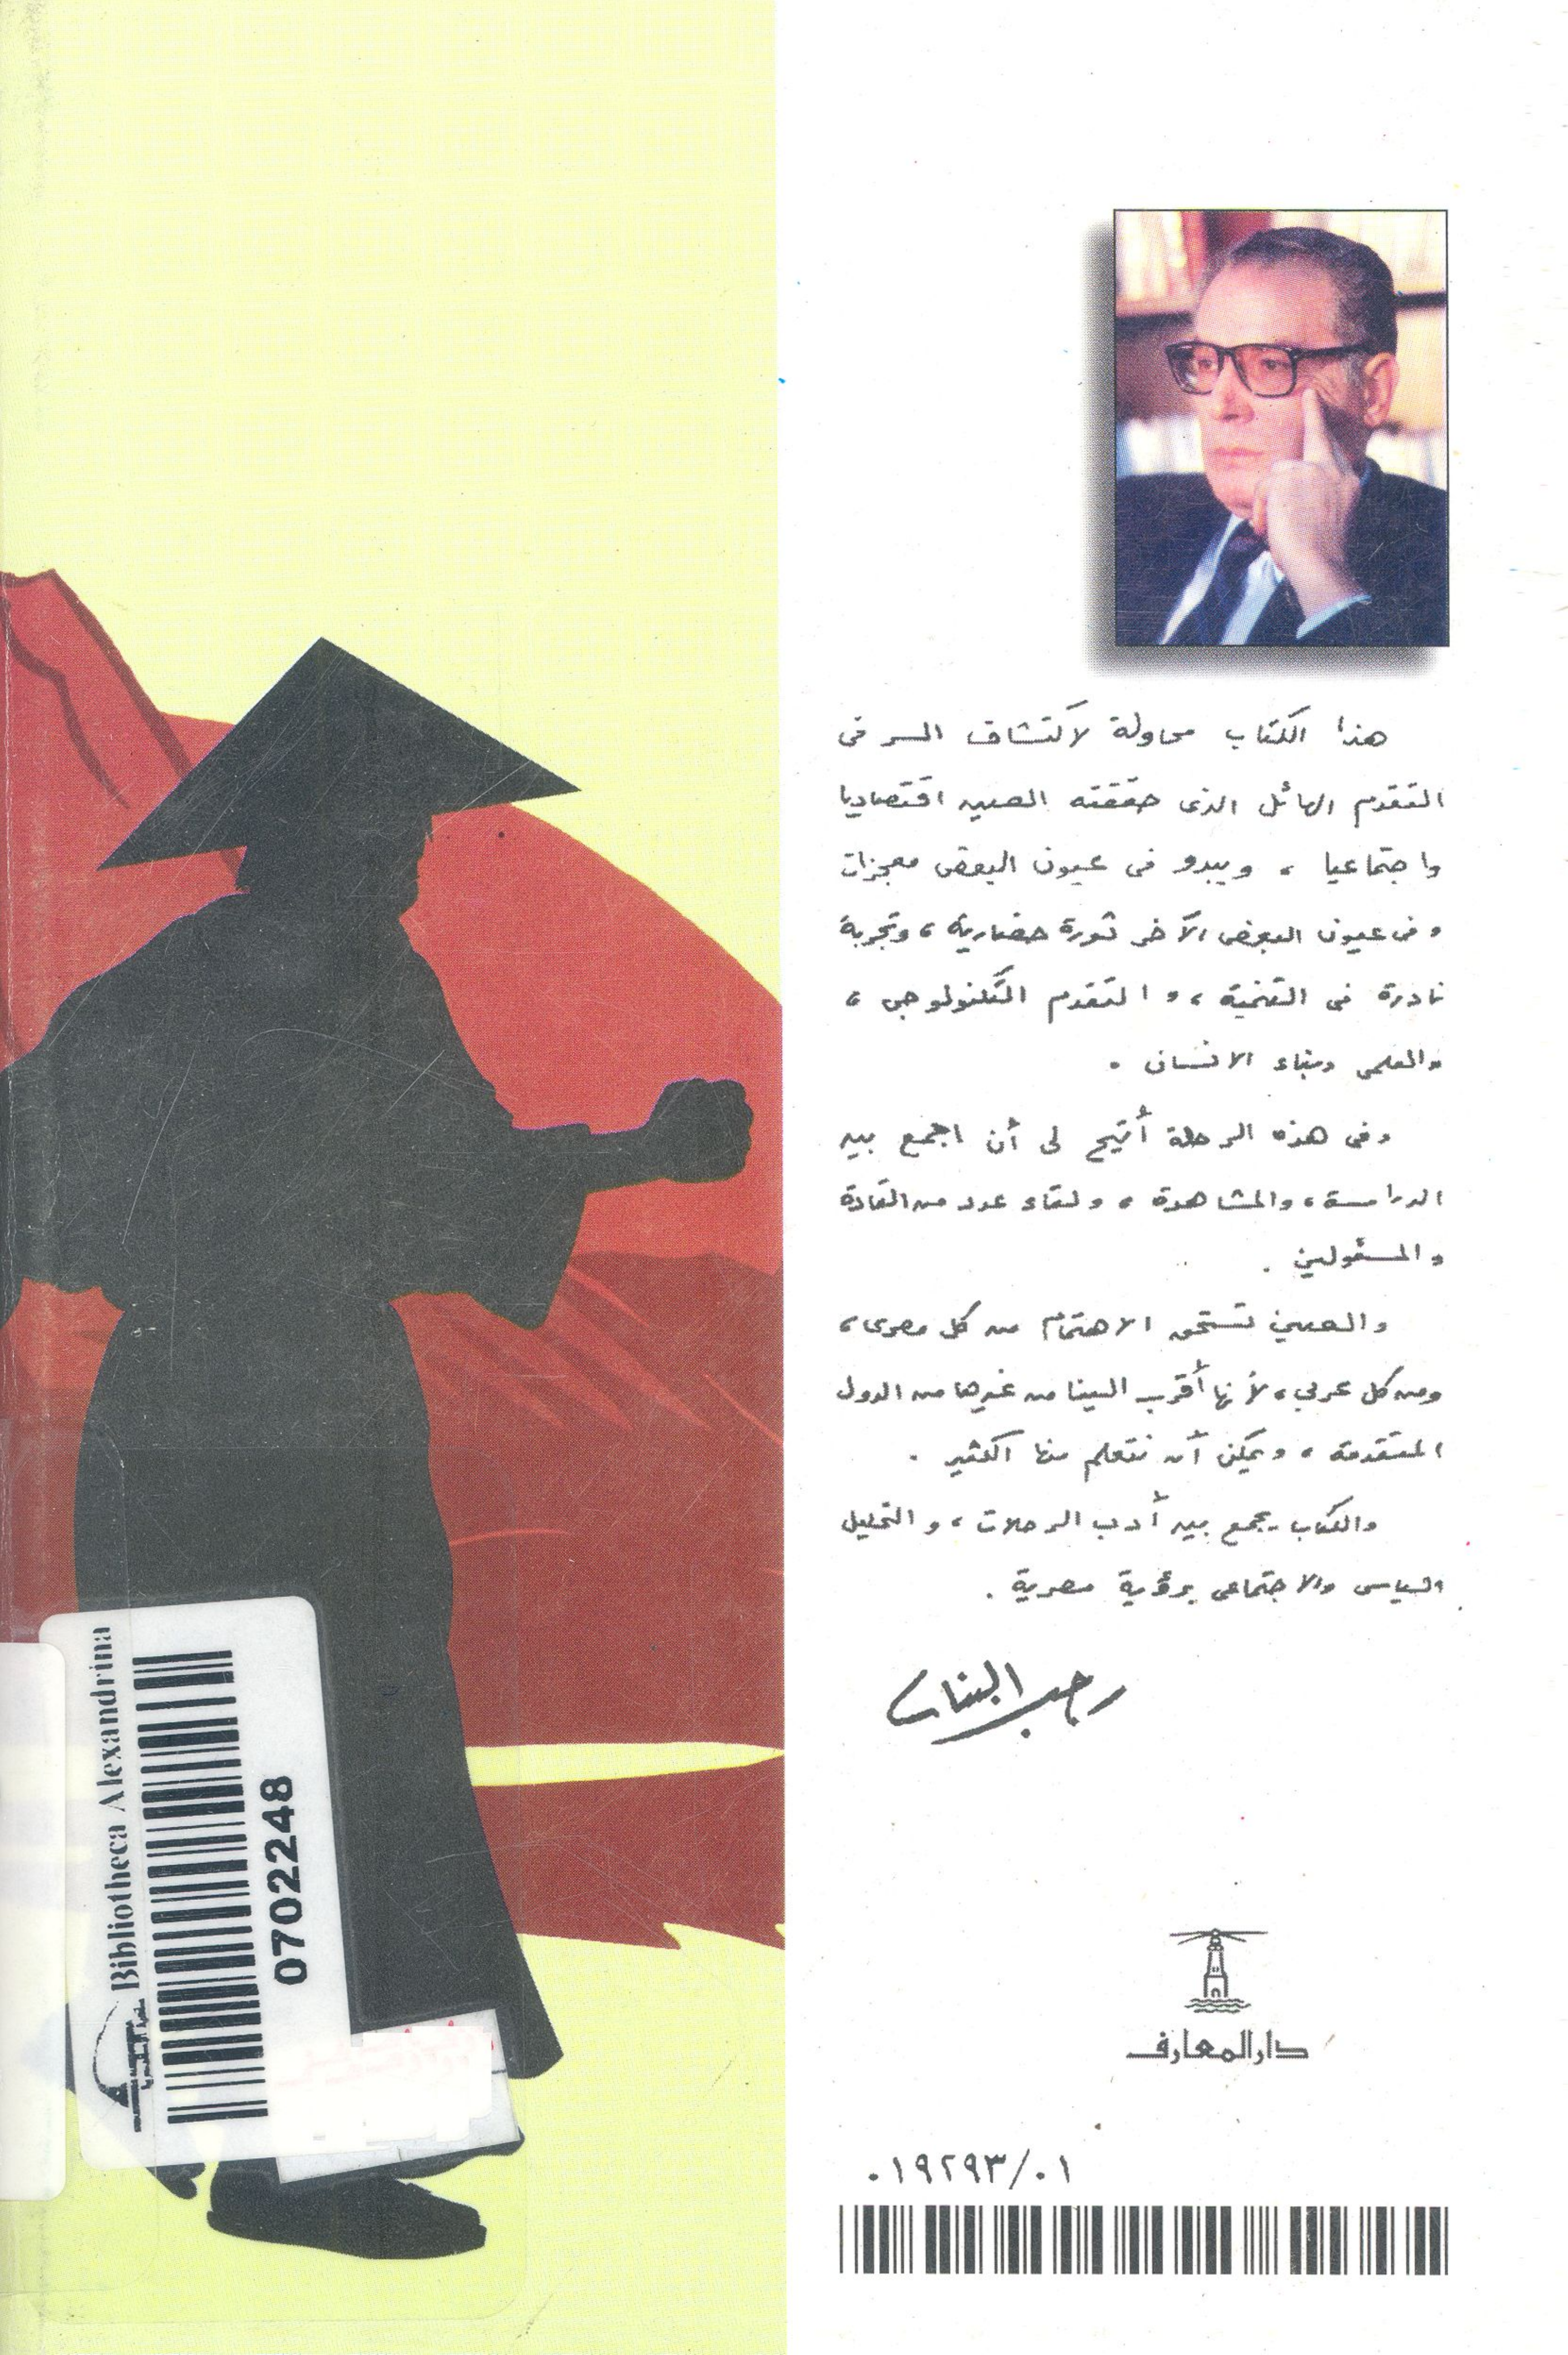 هذا الكتاب محاولة لاكتشاف السر فى
التقدم الهائل الذى حققته الصين اقتصاديا
واجتماعيا ، ويبدو فى عيون البعض معجزات
وفى عيون البعض الآخر ثورة حضارية ، وتجربة
نادرة فى التنمية ، والتقدم التكنولوجى ،
والعلمى وبناء الانسان .
وفى هذه الرحلة أتيح لى أن اجمع بين
الدراسة ، والمشاهدة ، ولقاء عدد من القادة
والمسئولين .
والصين تستحق الاهتمام من كل مصرى ،
ومن كل عربى ، لأنها أقرب الينا من غيرها من الدول
المتقدمة ، ويمكن أن نتعلم منها الكثير .
والكتاب يجمع بين أدب الرحلات ، والتحليل
السياسى والاجتماعى برؤية مصرية .
رجب البنا
دار المعارف
٠١٩٢٩٣/٠١
Bibliotheca Alexandrina
مكتبة الإسكندرية
0702248